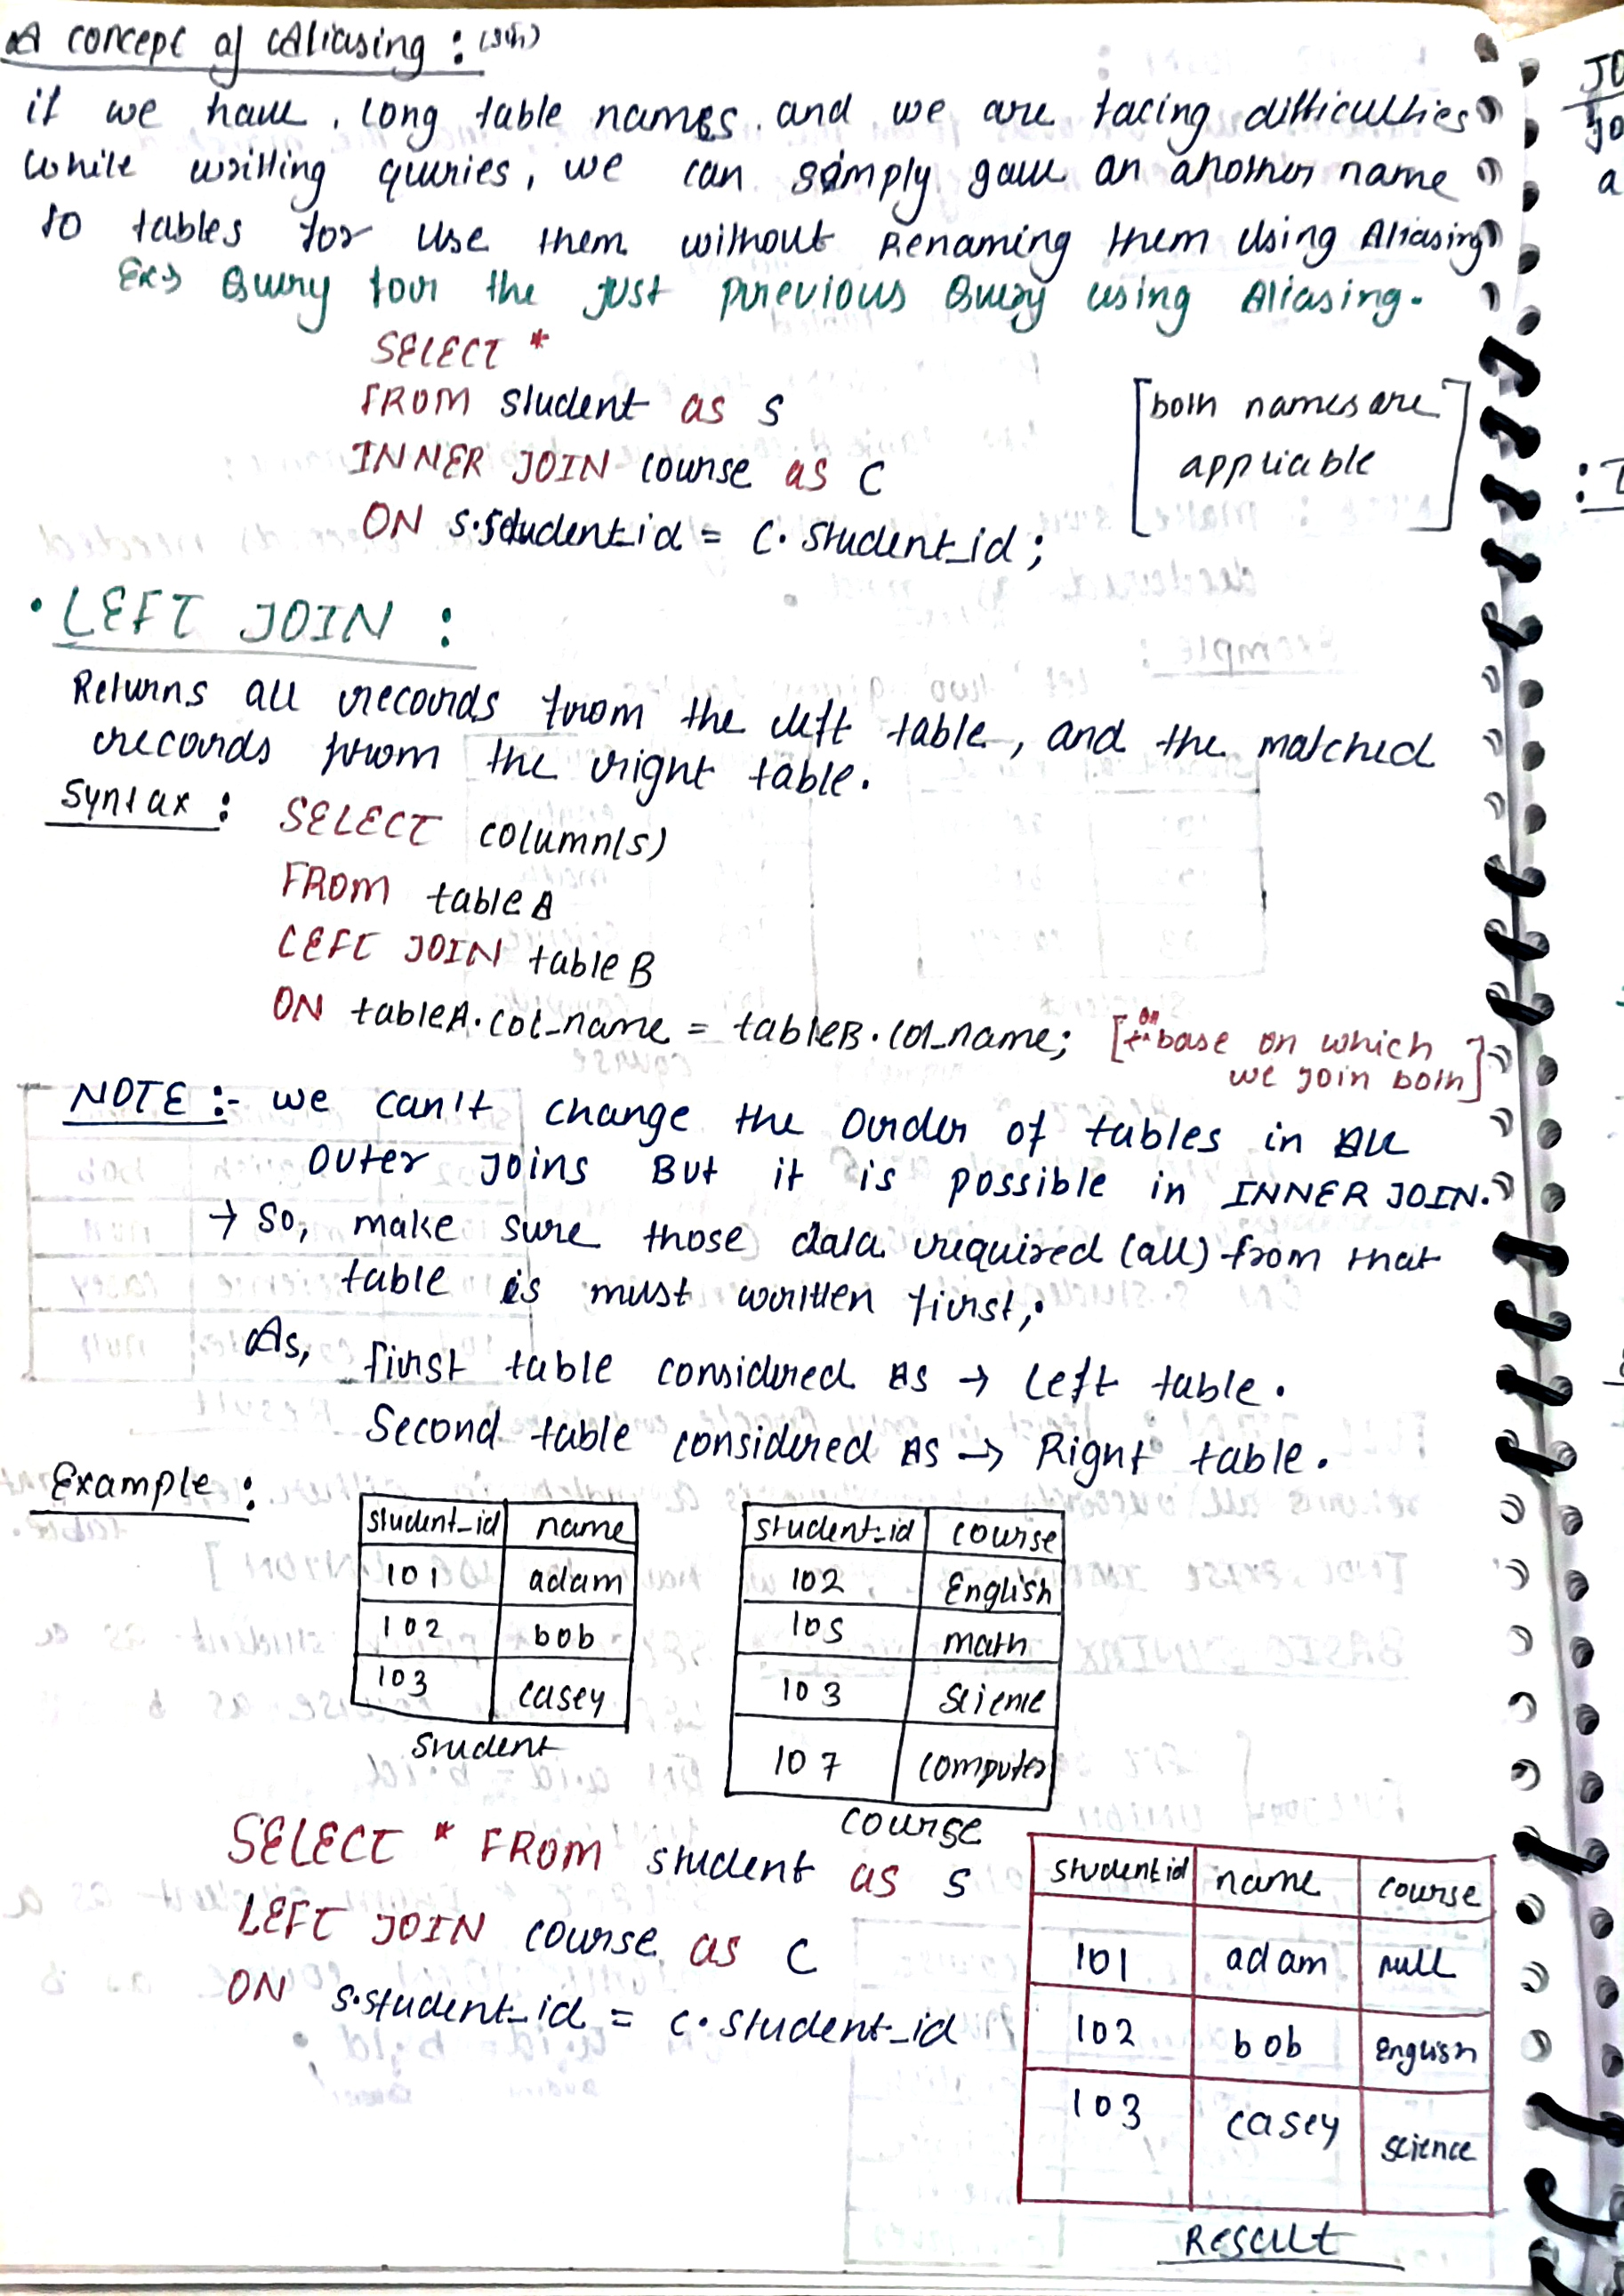 A concept of Aliasing :
if we have long table names and we are facing difficulties
while writting queries, we can simply gave an another name
to tables for use them without Renaming them Using Aliasing
Ex→ Query for the just previous Query using Aliasing.
SELECT *
FROM student as S
INNER JOIN course as C
ON s.student_id = C.student_id;
[both names are
appliable]
• LEFT JOIN :
Returns all records from the left table, and the matched
records from the right table.
Syntax : SELECT column(s)
FROM tableA
LEFT JOIN tableB
ON tableA.col_name = tableB.col_name; [base on which
we join both]
NOTE :- we can't change the Order of tables in All
Outer Joins But it is possible in INNER JOIN.
→ So, make sure those data required (all) from that
table is must written first,.
As, first table considered As → Left table.
Second table considered As → Right table.
Example :
student_id name
101 adam
102 bob
103 casey
student
student_id course
102 English
105 math
103 Science
107 computer
course
SELECT * FROM student as s
LEFT JOIN course as C
ON s.student_id = c.student_id
student id name course
101 adam null
102 bob english
103 casey science
Result